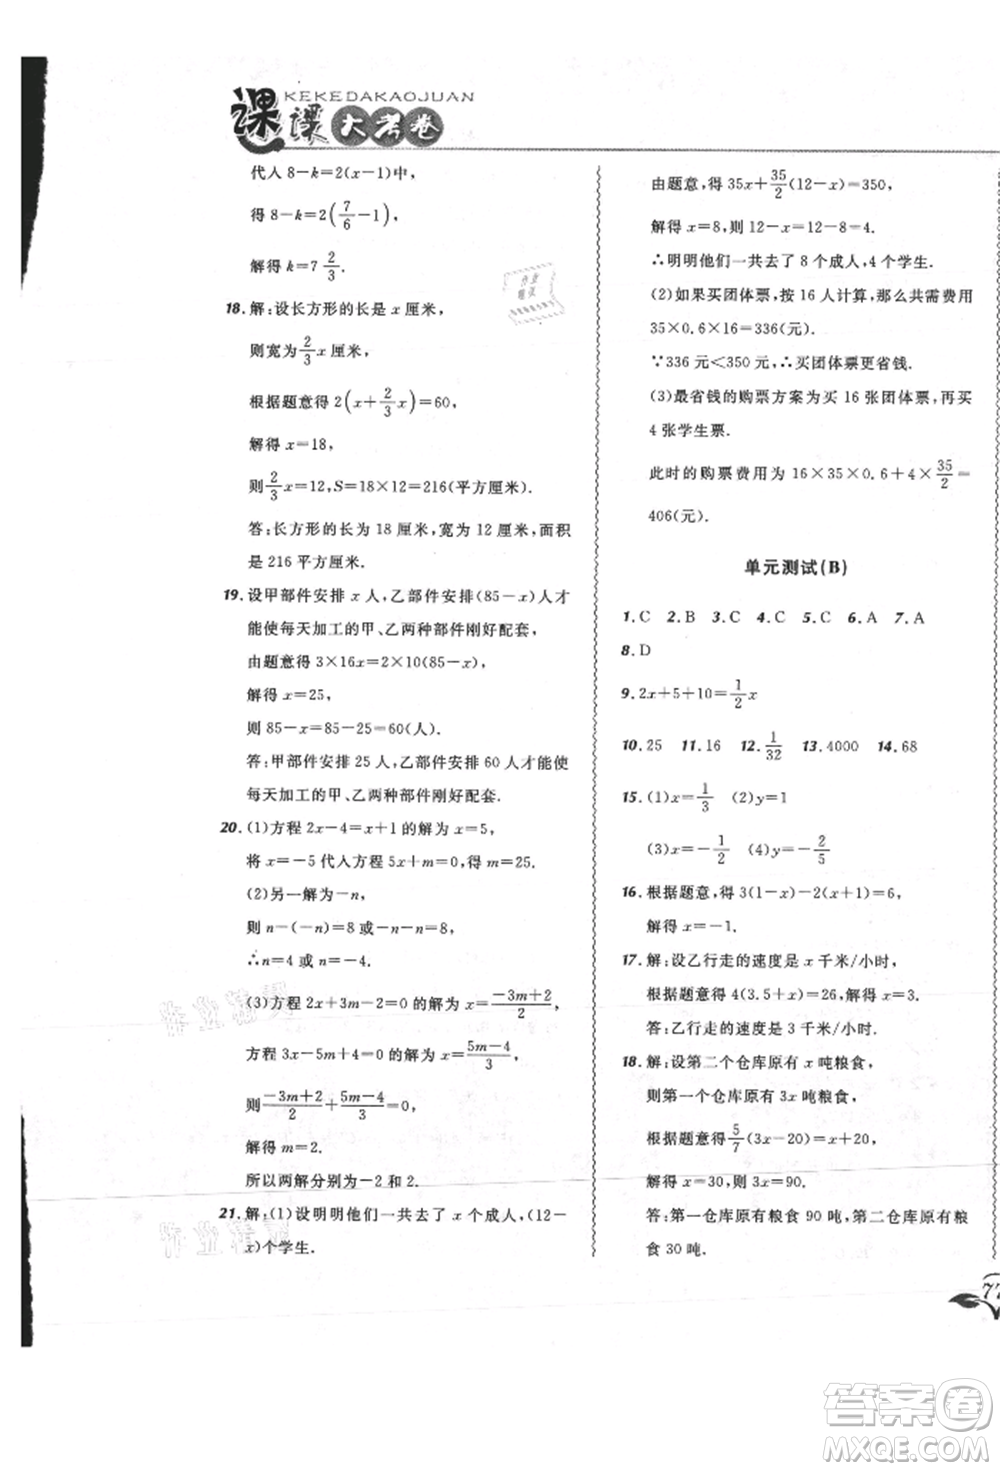 KEKEDAKAOJUAN
课课大考卷
代人 8－k＝2(x－1)中,
得 8－k＝2(7/6－1),
解得 k＝7 2/3.
18. 解:设长方形的长是 x 厘米,
则宽为 2/3 x 厘米,
根据题意得 2(x＋2/3 x)＝60,
解得 x＝18,
则 2/3 x＝12,S＝18×12＝216(平方厘米).
答:长方形的长为 18 厘米,宽为 12 厘米,面积
是 216 平方厘米.
19. 设甲部件安排 x 人,乙部件安排(85－x)人才
能使每天加工的甲、乙两种部件刚好配套,
由题意得 3×16x＝2×10(85－x),
解得 x＝25,
则 85－x＝85－25＝60(人).
答:甲部件安排 25 人,乙部件安排 60 人才能使
每天加工的甲、乙两种部件刚好配套.
20. (1)方程 2x－4＝x＋1 的解为 x＝5,
将 x＝－5 代人方程 5x＋m＝0,得 m＝25.
(2)另一解为－n,
则 n－(－n)＝8 或－n－n＝8,
∴n＝4 或 n＝－4.
(3)方程 2x＋3m－2＝0 的解为 x＝(－3m＋2)/2,
方程 3x－5m＋4＝0 的解为 x＝(5m－4)/3,
则(－3m＋2)/2＋(5m－4)/3＝0,
解得 m＝2.
所以两解分别为－2 和 2.
21. 解:(1)设明明他们一共去了 x 个成人,(12－
x)个学生.
由题意,得 35x＋35/2(12－x)＝350,
解得 x＝8,则 12－x＝12－8＝4.
∴明明他们一共去了 8 个成人,4 个学生.
(2)如果买团体票,按 16 人计算,那么共需费用
35×0.6×16＝336(元).
∵336 元＜350 元,∴买团体票更省钱.
(3)最省钱的购票方案为买 16 张团体票,再买
4 张学生票.
此时的购票费用为 16×35×0.6＋4×35/2＝
406(元).
单元测试(B)
1. C 2. B 3. C 4. C 5. C 6. A 7. A
8. D
9. 2x＋5＋10＝1/2 x
10. 25 11. 16 12. 1/32 13. 4000 14. 68
15. (1)x＝1/3 (2)y＝1
(3)x＝－1/2 (4)y＝－2/5
16. 根据题意,得 3(1－x)－2(x＋1)＝6,
解得 x＝－1.
17. 解:设乙行走的速度为 x 千米/小时,
根据题意得 4(3.5＋x)＝26,解得 x＝3.
答:乙行走的速度是 3 千米/小时.
18. 解:设第二个仓库原有 x 吨粮食,
则第一个仓库原有 3x 吨粮食,
根据题意得 5/7(3x－20)＝x＋20,
解得 x＝30,则 3x＝90.
答:第一仓库原有粮食 90 吨,第二仓库原有粮
食 30 吨.
77
答案卷
MXQE.COM